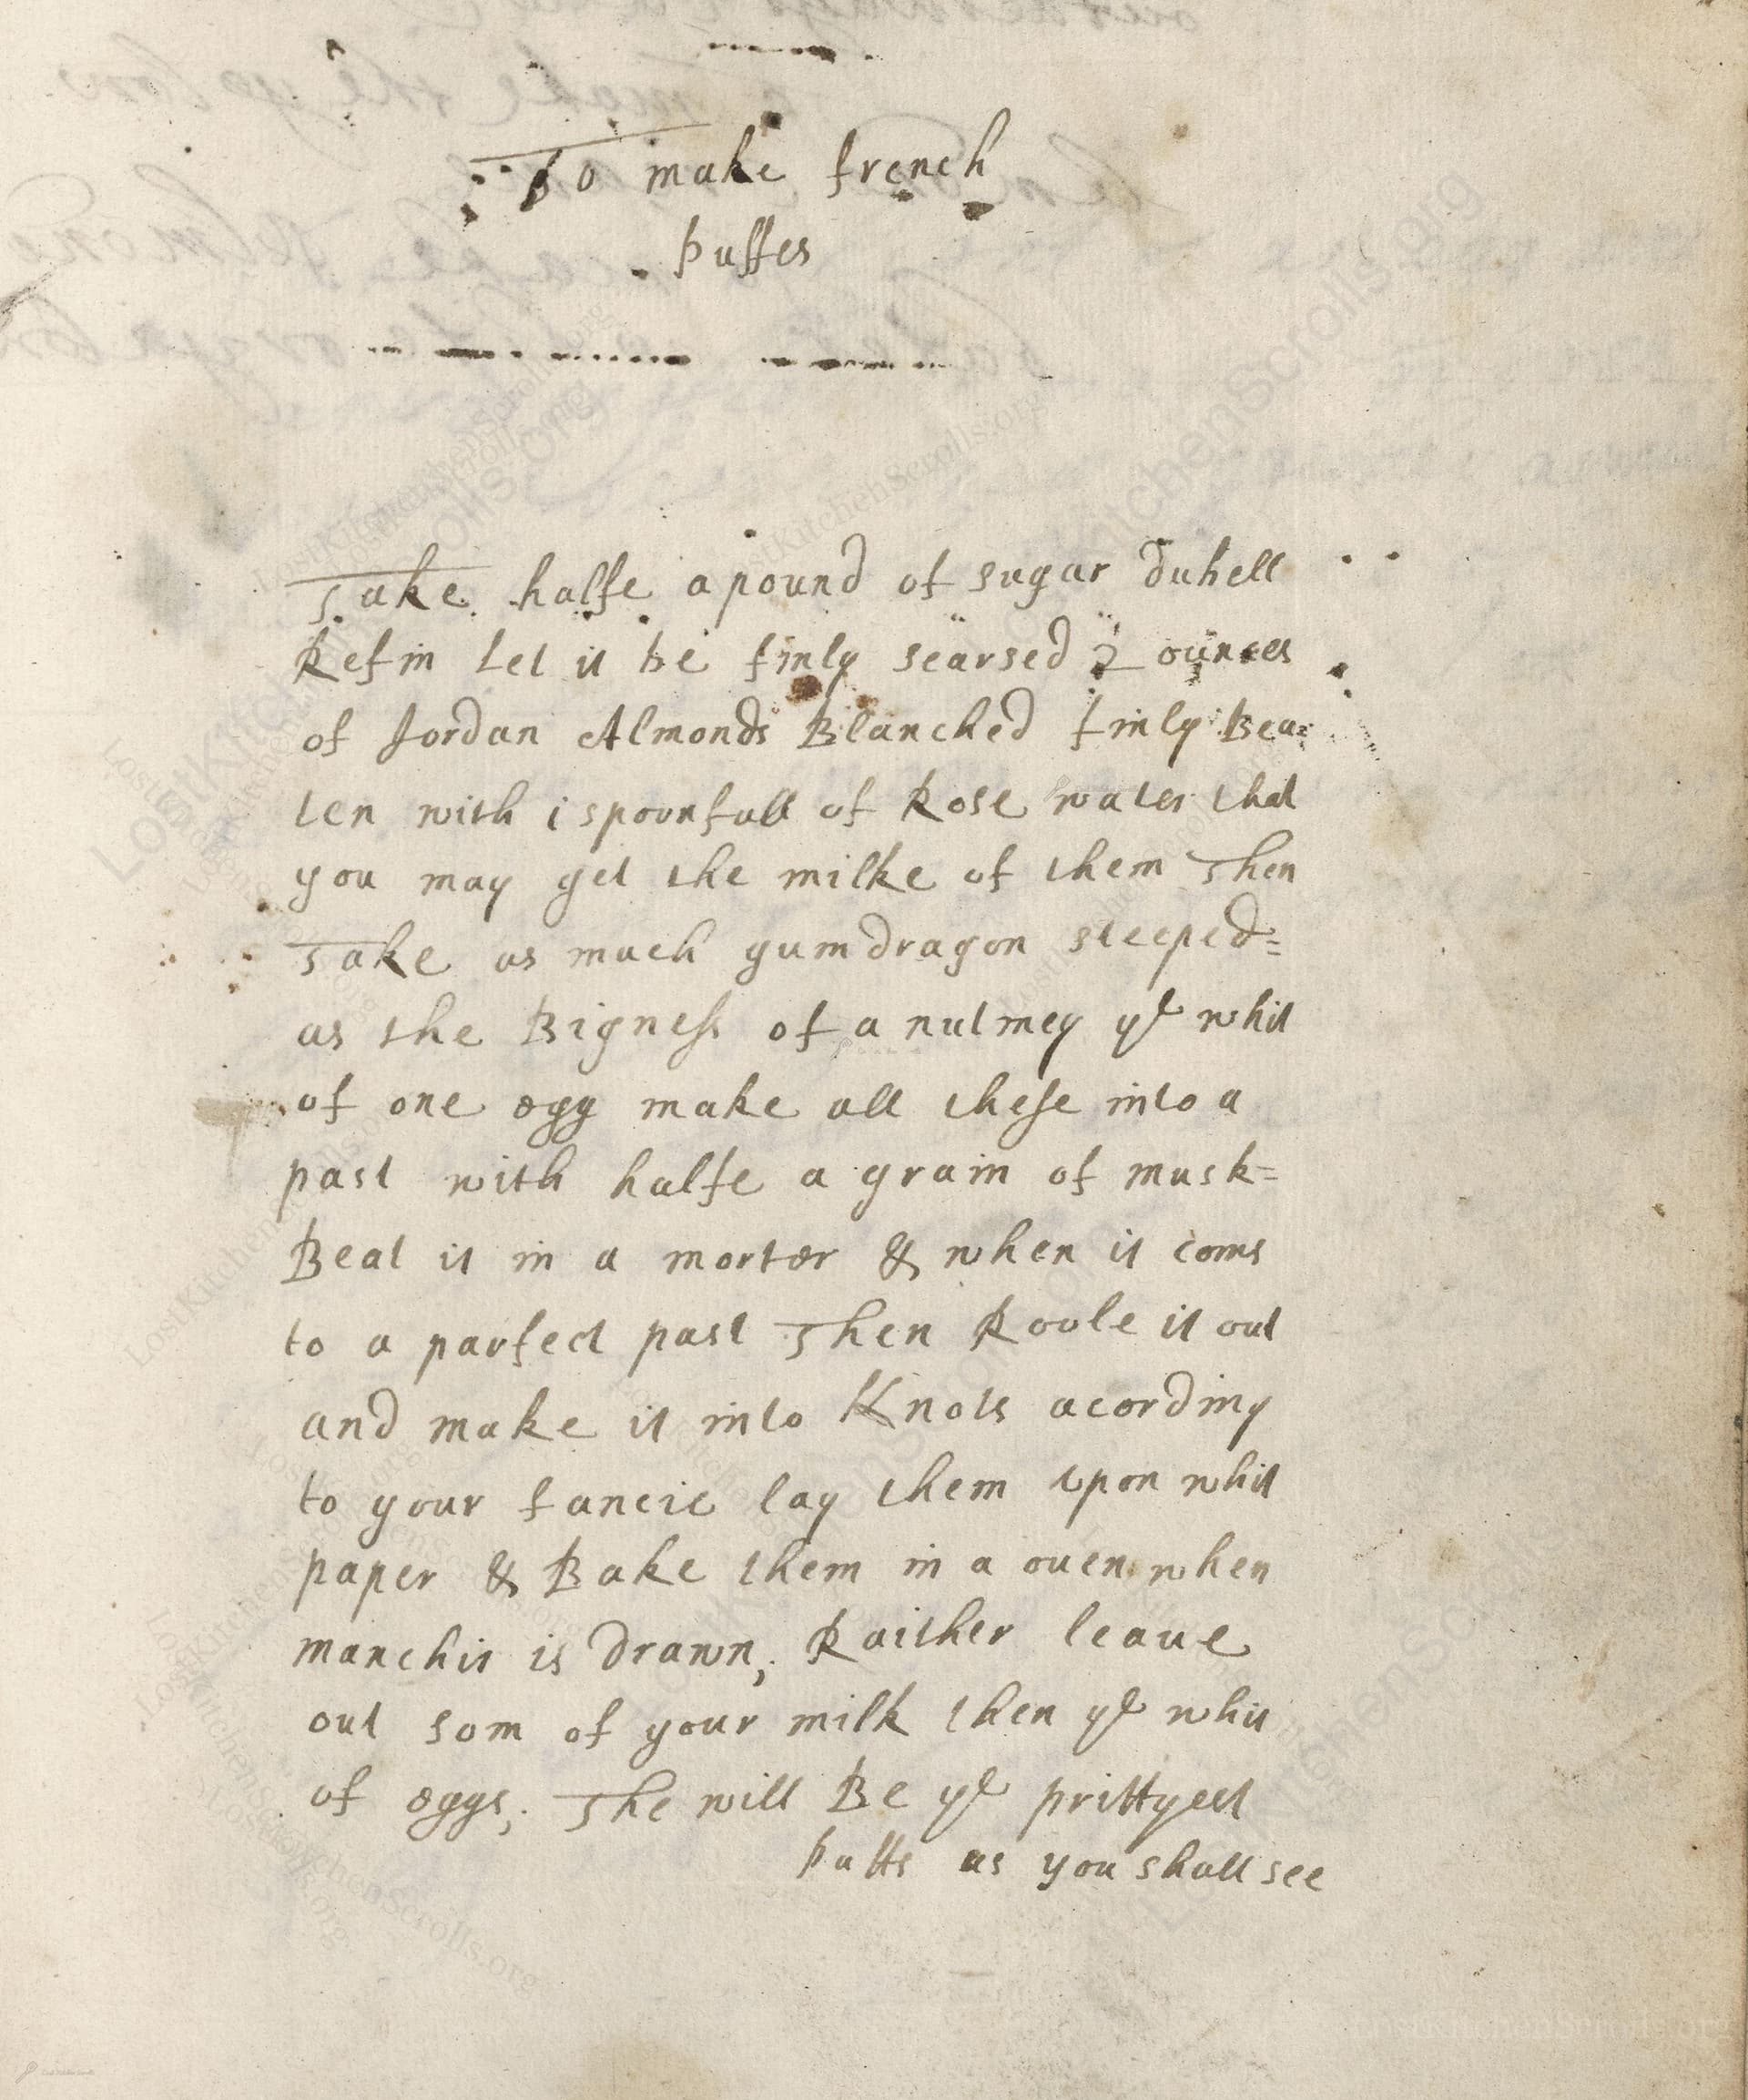 To make french
puffes
Take halfe a pound of sugar duhell
Refin Let it be finly searsed 2 ounces
of Jordan Almonds Blanched finly Bea:
ten with i spoonfull of Rose water that
you may get the milke of them Then
Take as much gumdragon steeped=
as the Bigness of a nutmeg ye whit
of one egg make all these into a
past with halfe a grain of musk=
Beat it in a morter & when it coms
to a parfect past Then Roole it out
and make it into Knots acording
to your fancie lay them upon whit
paper & Bake them in a ouen when
manchit is drawn, Raither leaue
out som of your milk then ye whit
of eggs, The will Be ye prittyest
puffs as you shall see
LostKitchenScrolls.org